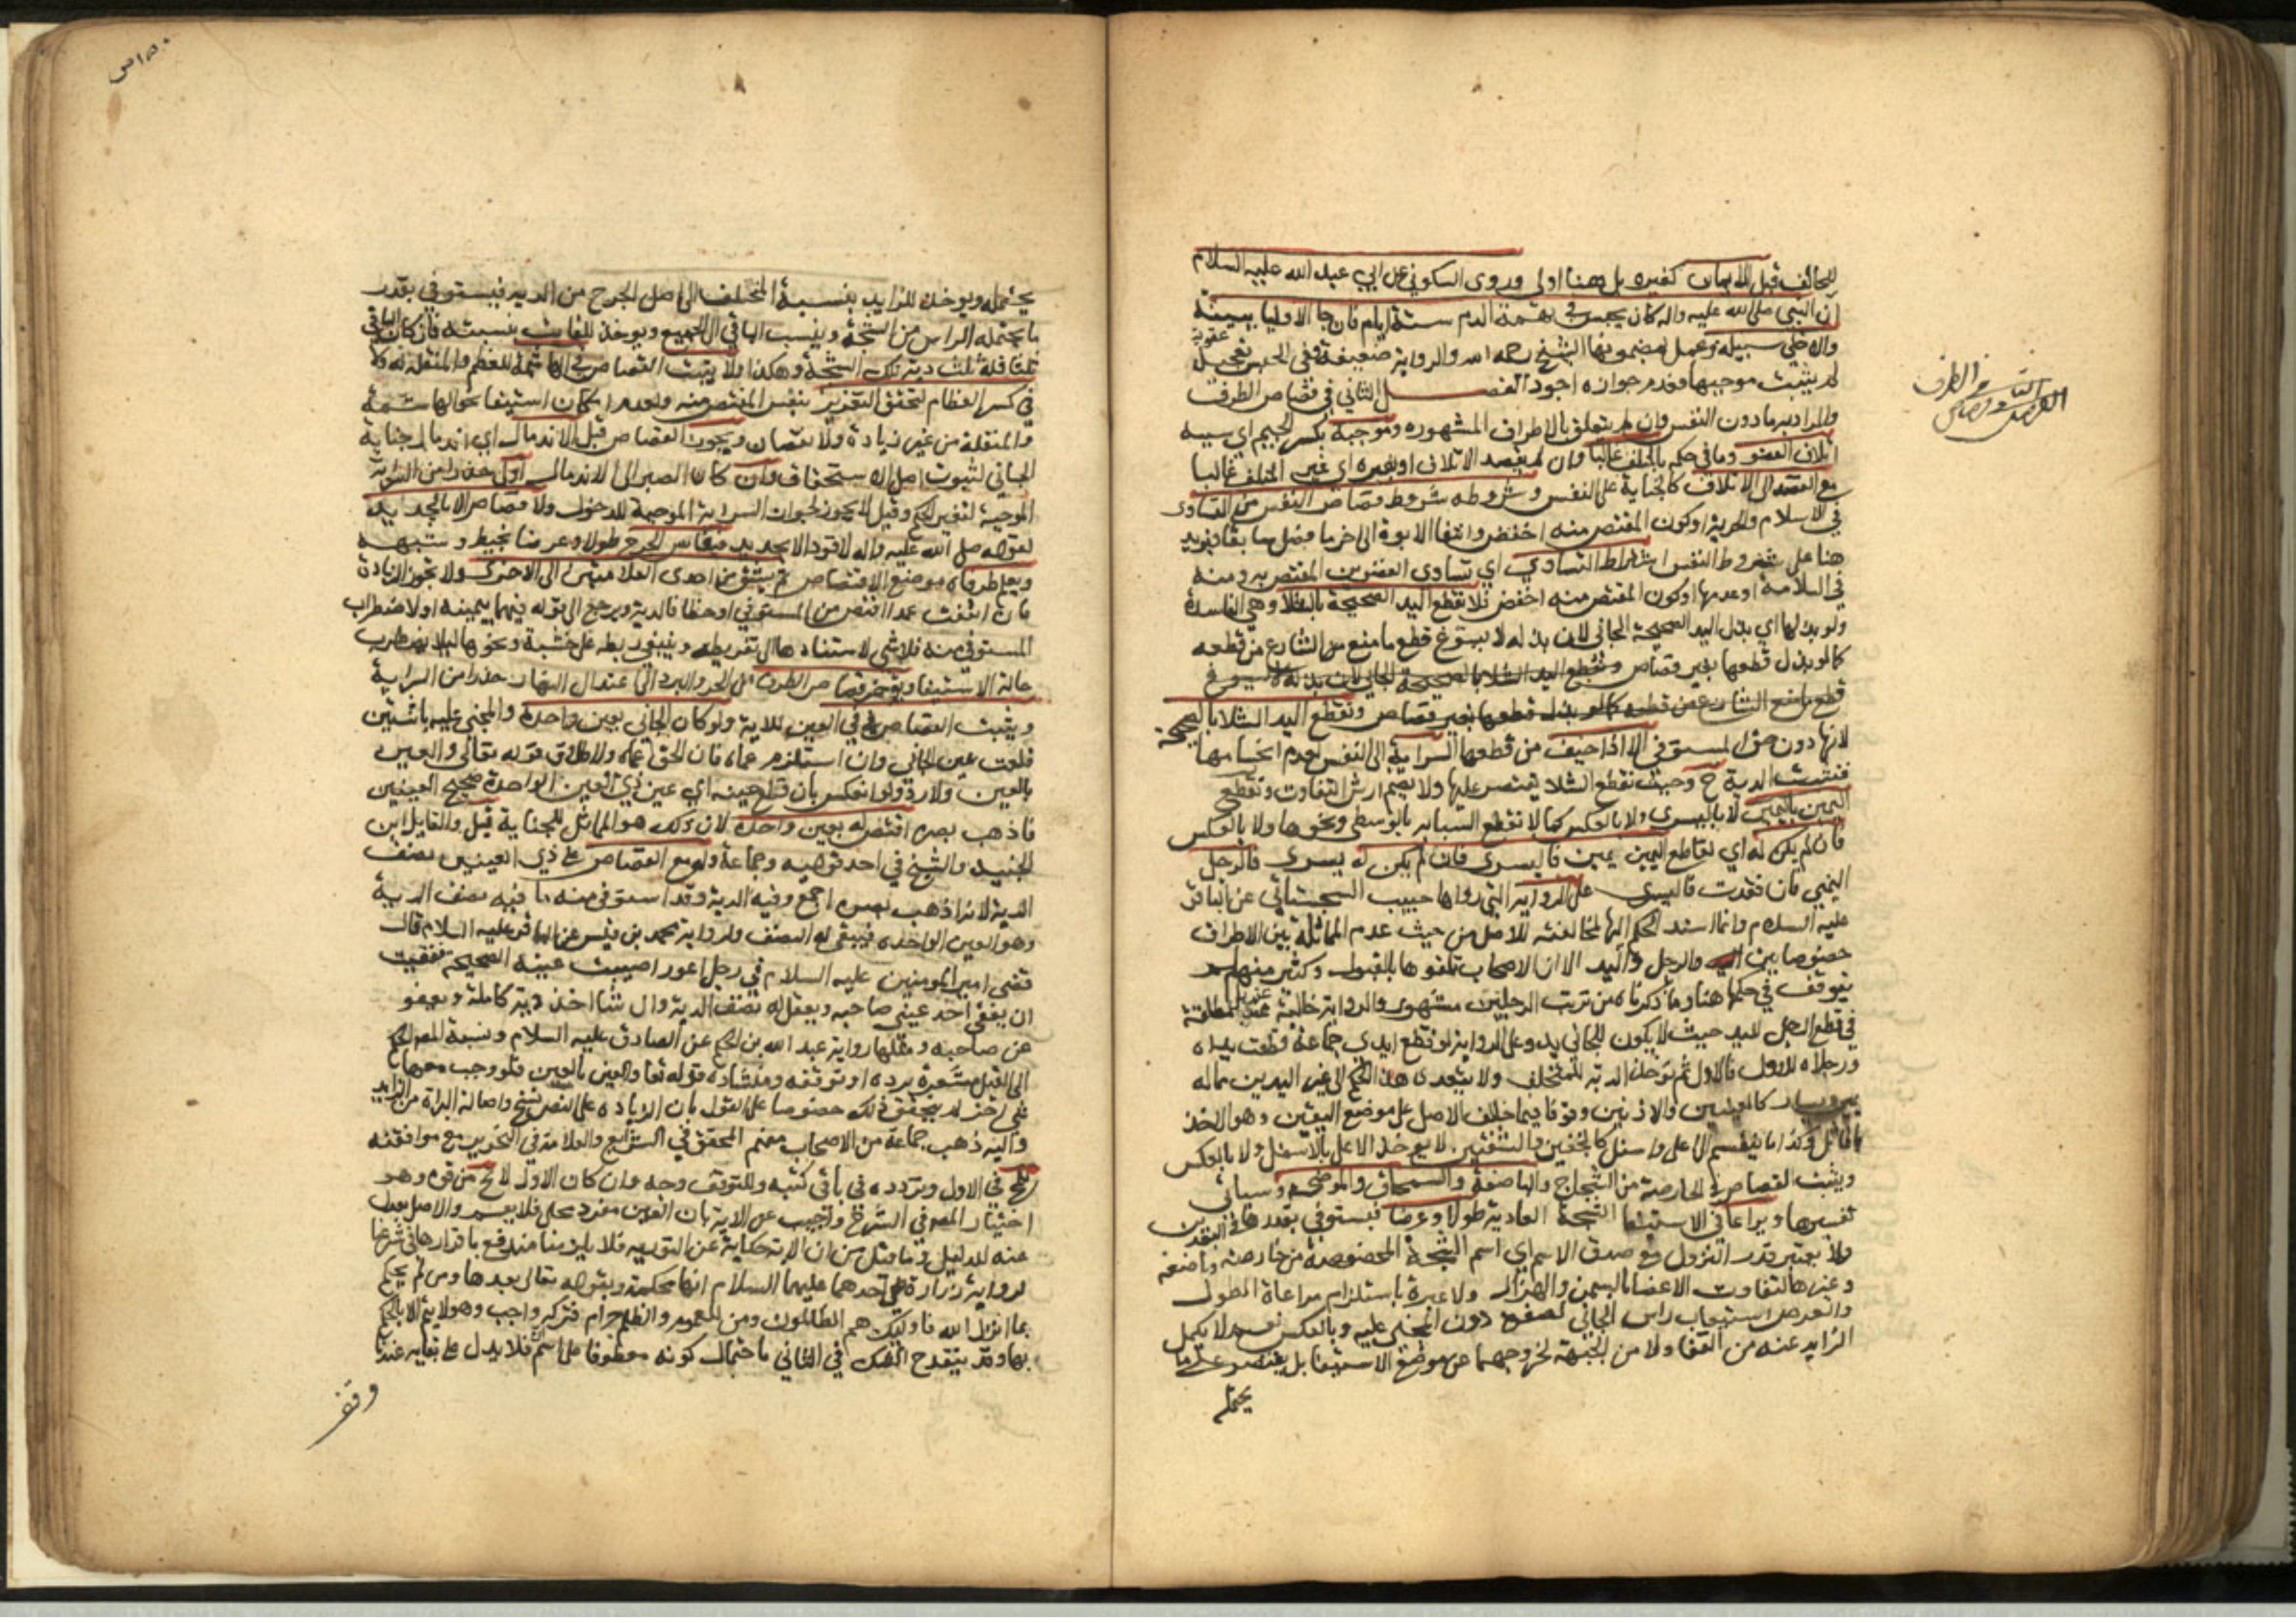 للحالف قبل الايمان كغيره بل هنا اولى وروى السكوني عن ابي عبد الله عليه السلام
ان النبي صلى الله عليه واله كان يحبس في تهمة الدم ستة ايام فان جا الاوليا ببينة
والا خلى سبيله وعمل بمضمونها الشيخ رحمه الله والرواية ضعيفة وفي الحبس تعجيل عقوبة
لم يثبت موجبها فعدم جوازه اجود الفصل الثاني في قصاص الطرف
الفصل الثاني في قصاص الطرف
والمراد به ما دون النفس وان لم يتعلق بالاطراف المشهوره وموجبه بكسر الجيم اي سببه
اتلاف العضو وما في حكمه بالمتلف غالبا وان لم يقصد الاتلاف او بغيره اي غير المتلف غالبا
مع القصد الى الاتلاف كالجناية على النفس وشروطه شروط قصاص النفس من التساوى
في الاسلام والحرية او كون المقتص منه اخفض وانتفا الابوة الى اخر ما فصل سابقا ويزيد
هنا على شروط النفس اشتراط التساوي اي تساوى العضوين المقتص به ومنه
في السلامة او عدمها او كون المقتص منه اخفض فلا تقطع اليد الصحيحة بالشلا وهي الفاسدة
ولو بذلها اي بذل اليد الصحيحة الجاني لان بذله لا يسوغ قطع ما منع من الشارع من قطعه
كما لو بذل قطعها بغير قصاص وتقطع اليد الشلا بالصحيحة الجاني لان بذله لا يسوغ
قطع ما منع الشارع من قطعه كما لو بذل قطعها بغير قصاص وتقطع اليد الشلا بالصحيحة
لانها دون حق المستوفي الا اذا خيف من قطعها السراية الى النفس لعدم انحسامها
فتثبت الدية ح وحيث تقطع الشلا يقتصر عليها ولا يضم ارش التفاوت وتقطع
اليمين باليمين لا باليسرى ولا بالعكس كما لا تقطع السبابه بالوسطى ونحوها ولا بالعكس
فان لم يكن له اي لقاطع اليمين يمين فاليسرى فان لم يكن له يسرى فالرجل
اليمنى فان فقدت فاليسرى على الرواية التي رواها حبيب السجستاني عن الباقر
عليه السلام وانما اسند الحكم اليها لمخالفته للاصل من حيث عدم المماثلة بين الاطراف
خصوصا بين الرجل واليد الا ان الاصحاب تلقوها بالقبول وكثير منهم
توقف في حكمها هنا وما ذكرناه من ترتب الرجلين مشهور والرواية خالية عنه بل مطلقة
في قطع الرجل لليد حيث لا يكون للجاني يد وعلى الرواية لو قطع ايدي جماعة قطعت يداه
ورجلاه للاول فالاول ثم تؤخذ الدية للمتخلف ولا يتعدى هذا الحكم الى غير اليدين مما له
يمين ويسار كالعينين والاذنين وقوفا فيما خالف الاصل على موضع اليقين وهو الاخذ
بالمماثل وكذا ما ينقسم الى اعلى واسفل كالجفنين والشفتين لا يؤخذ الاعلى بالاسفل ولا بالعكس
ويثبت القصاص في الحارصة من الشجاج والباضعة والسمحاق والموضحه وسياتي
تفسيرها ويراعى في الاستيفا الشجة العادية طولا وعرضا فيستوفى بقدرها في البعدين
ولا يعتبر قدر النزول مع صدق الاسم اي اسم الشجة المخصوصة من حارصة وباضعة
وغيرها لتفاوت الاعضا بالسمن والهزال ولا عبرة باستلزام مراعاة الطول
والعرض استيعاب راس الجاني لصغره دون المجني عليه وبالعكس نعم لا يكمل
الزايد عنه من القفا ولا من الجبهة لخروجهما عن موضع الاستيفا بل يقتصر على ما
يحتمله
١٥٠ س
يحتمله ويوخذ للزايد بنسبة المتخلف الى اصل الجرح من الدية فيستوفى بقدر
ما يحتمله الراس من الشجة وينسب الباقي الى الجميع ويوخذ للفايت بنسبته فان كان الباقي
ثلثا فله ثلث دية تلك الشجة وهكذا ولا يثبت القصاص في الهاشمة للعظم والمنقلة له ولا
في كسر العظام لتحقق التغرير بنفس المقتص منه ولعدم امكان استيفا نحو الهاشمة
والمنقلة من غير زيادة ولا نقصان ويجوز القصاص قبل الاندمال اي اندمال جناية
الجاني لثبوت اصل الاستحقاق وان كان الصبر الى الاندمال اولى حذرا من السراية
الموجبة لتغير الحكم وقيل لا يجوز لجواز السراية الموجبة للدخول ولا قصاص الا بالحديد
لقوله صلى الله عليه واله لا قود الا بحديد فيقاس الجرح طولا وعرضا بخيط وشبهه
ويعلم طرفاه موضع الاقتصاص ثم يشق من احدى العلامتين الى الاخرى ولا تجوز الزيادة
فان اتفقت عمدا اقتص من المستوفي او خطا فالدية ويرجع الى قوله فيهما بيمينه او لاضطراب
المستوفى منه فلا شي لاستنادها الى تفريطه وينبغي ربطه على خشبة ونحوها لئلا يضطرب
حالة الاستيفا ويؤخر قصاص الطرف من الحر والبرد الى اعتدال النهار حذرا من السراية
ويثبت القصاص في العين للاية ولو كان الجاني بعين واحدة والمجني عليه باثنتين
قلعت عين الجاني وان استلزم عماه فان الحق اعماه ولاطلاق قوله تعالى والعين
بالعين ولا رد ولو انعكس بان قلع عينه اي عين ذي العين الواحدة صحيح العينين
فاذهب بصره اقتص له بعين واحدة لان ذلك هو المماثل للجناية قيل والقايل ابن
الجنيد والشيخ في احد قوليه وجماعة وله مع القصاص على ذي العينين نصف
الدية لانه اذهب بصره اجمع وفيه الدية وقد استوفى منه ما فيه نصف الدية
وهو العين الواحده فيبقى له النصف ولرواية محمد بن قيس عن الباقر عليه السلام قال
قضى امير المومنين عليه السلام في رجل اعور اصيبت عينه الصحيحة ففقيت
ان يفقى احد عيني صاحبه ويعقل له نصف الدية وان شا اخذ دية كاملة ويعفو
عن صاحبه ومثلها رواية عبد الله بن الحكم عن الصادق عليه السلام ونسبة المص الحكم
الى القيل مشعرة برده او توقفه ومنشاه قوله تعا والعين بالعين فلو وجب معها
شي اخر لم يتحقق ذلك خصوصا على القول بان الزيادة على النص نسخ واصالة البراة من الزايد
واليه ذهب جماعة من الاصحاب منهم المحقق في الشرايع والعلامة في التحرير مع موافقته
في الاول وتردده في باقي كتبه وللتوقف وجه وان كان الاول لا يخ من قوة وهو
اختيار المص في الشرح واجيب عن الاية بان العين مفرد محلى فلا يعم والاصل يعدل
عنه للدليل وما قيل من ان الاية حكاية عن التوريه فلا يلزمنا مندفع باقرارها في شرعنا
لرواية زرارة عن احدهما عليهما السلام انها محكمة وبقوله تعالى بعدها ومن لم يحكم
بما انزل الله فاوليك هم الظالمون ومن للعموم والظلم حرام فتركه واجب وهو لا يتم الا بالحكم
بها وقد ينقدح الشك في الثاني باحتمال كونه معطوفا على اسم ان فلا يدل على بقايه عندنا
وقف